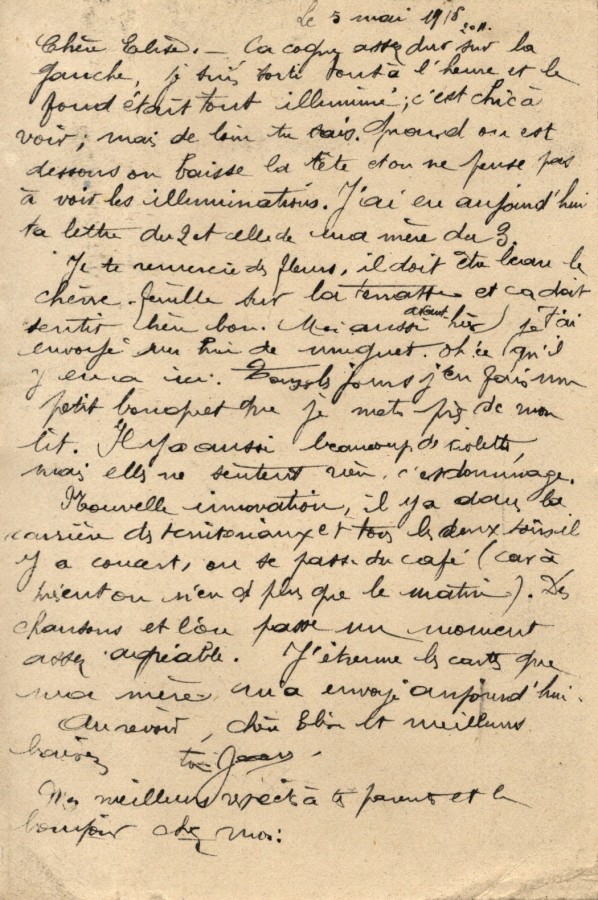 le 5 mai 1918
20 H.
Chère Elise. — Ca cogne assez dur sur la
gauche, je suis sorti tout à l'heure et le
fond était tout illuminé; c'est chic à
voir; mais de loin tu sais. Quand on est
dessous on baisse la tête et on ne pense pas
à voir les illuminations. J'ai eu aujourd'hui
ta lettre du 2 et celle de ma mère du 3.
Je te remercie des fleurs, il doit être beau le
chèvre-feuille sur la terrasse et ca doit
sentir bien bon. Moi aussi avant hier je t'ai
envoyé un brin de muguet. Oh ce qu'il
y en a ici. Tous les jours j'en fais un
petit bouquet que je mets près de mon
lit. Il y a aussi beaucoup de violettes,
mais elles ne sentent rien, c'est dommage.
Nouvelle innovation, il y a dans la
carrière des territoriaux et tous les deux soirs il
y a concert, on se passe du café (car à
présent on n'en a plus que le matin). Des
chansons et l'on passe un moment
assez agréable. J'étrenne les cartes que
ma mère m'a envoyé aujourd'hui.
Au revoir, chère Elise et meilleurs
baisers ton Jean
Mes meilleurs respects à tes parents et le
bonjour chez moi: